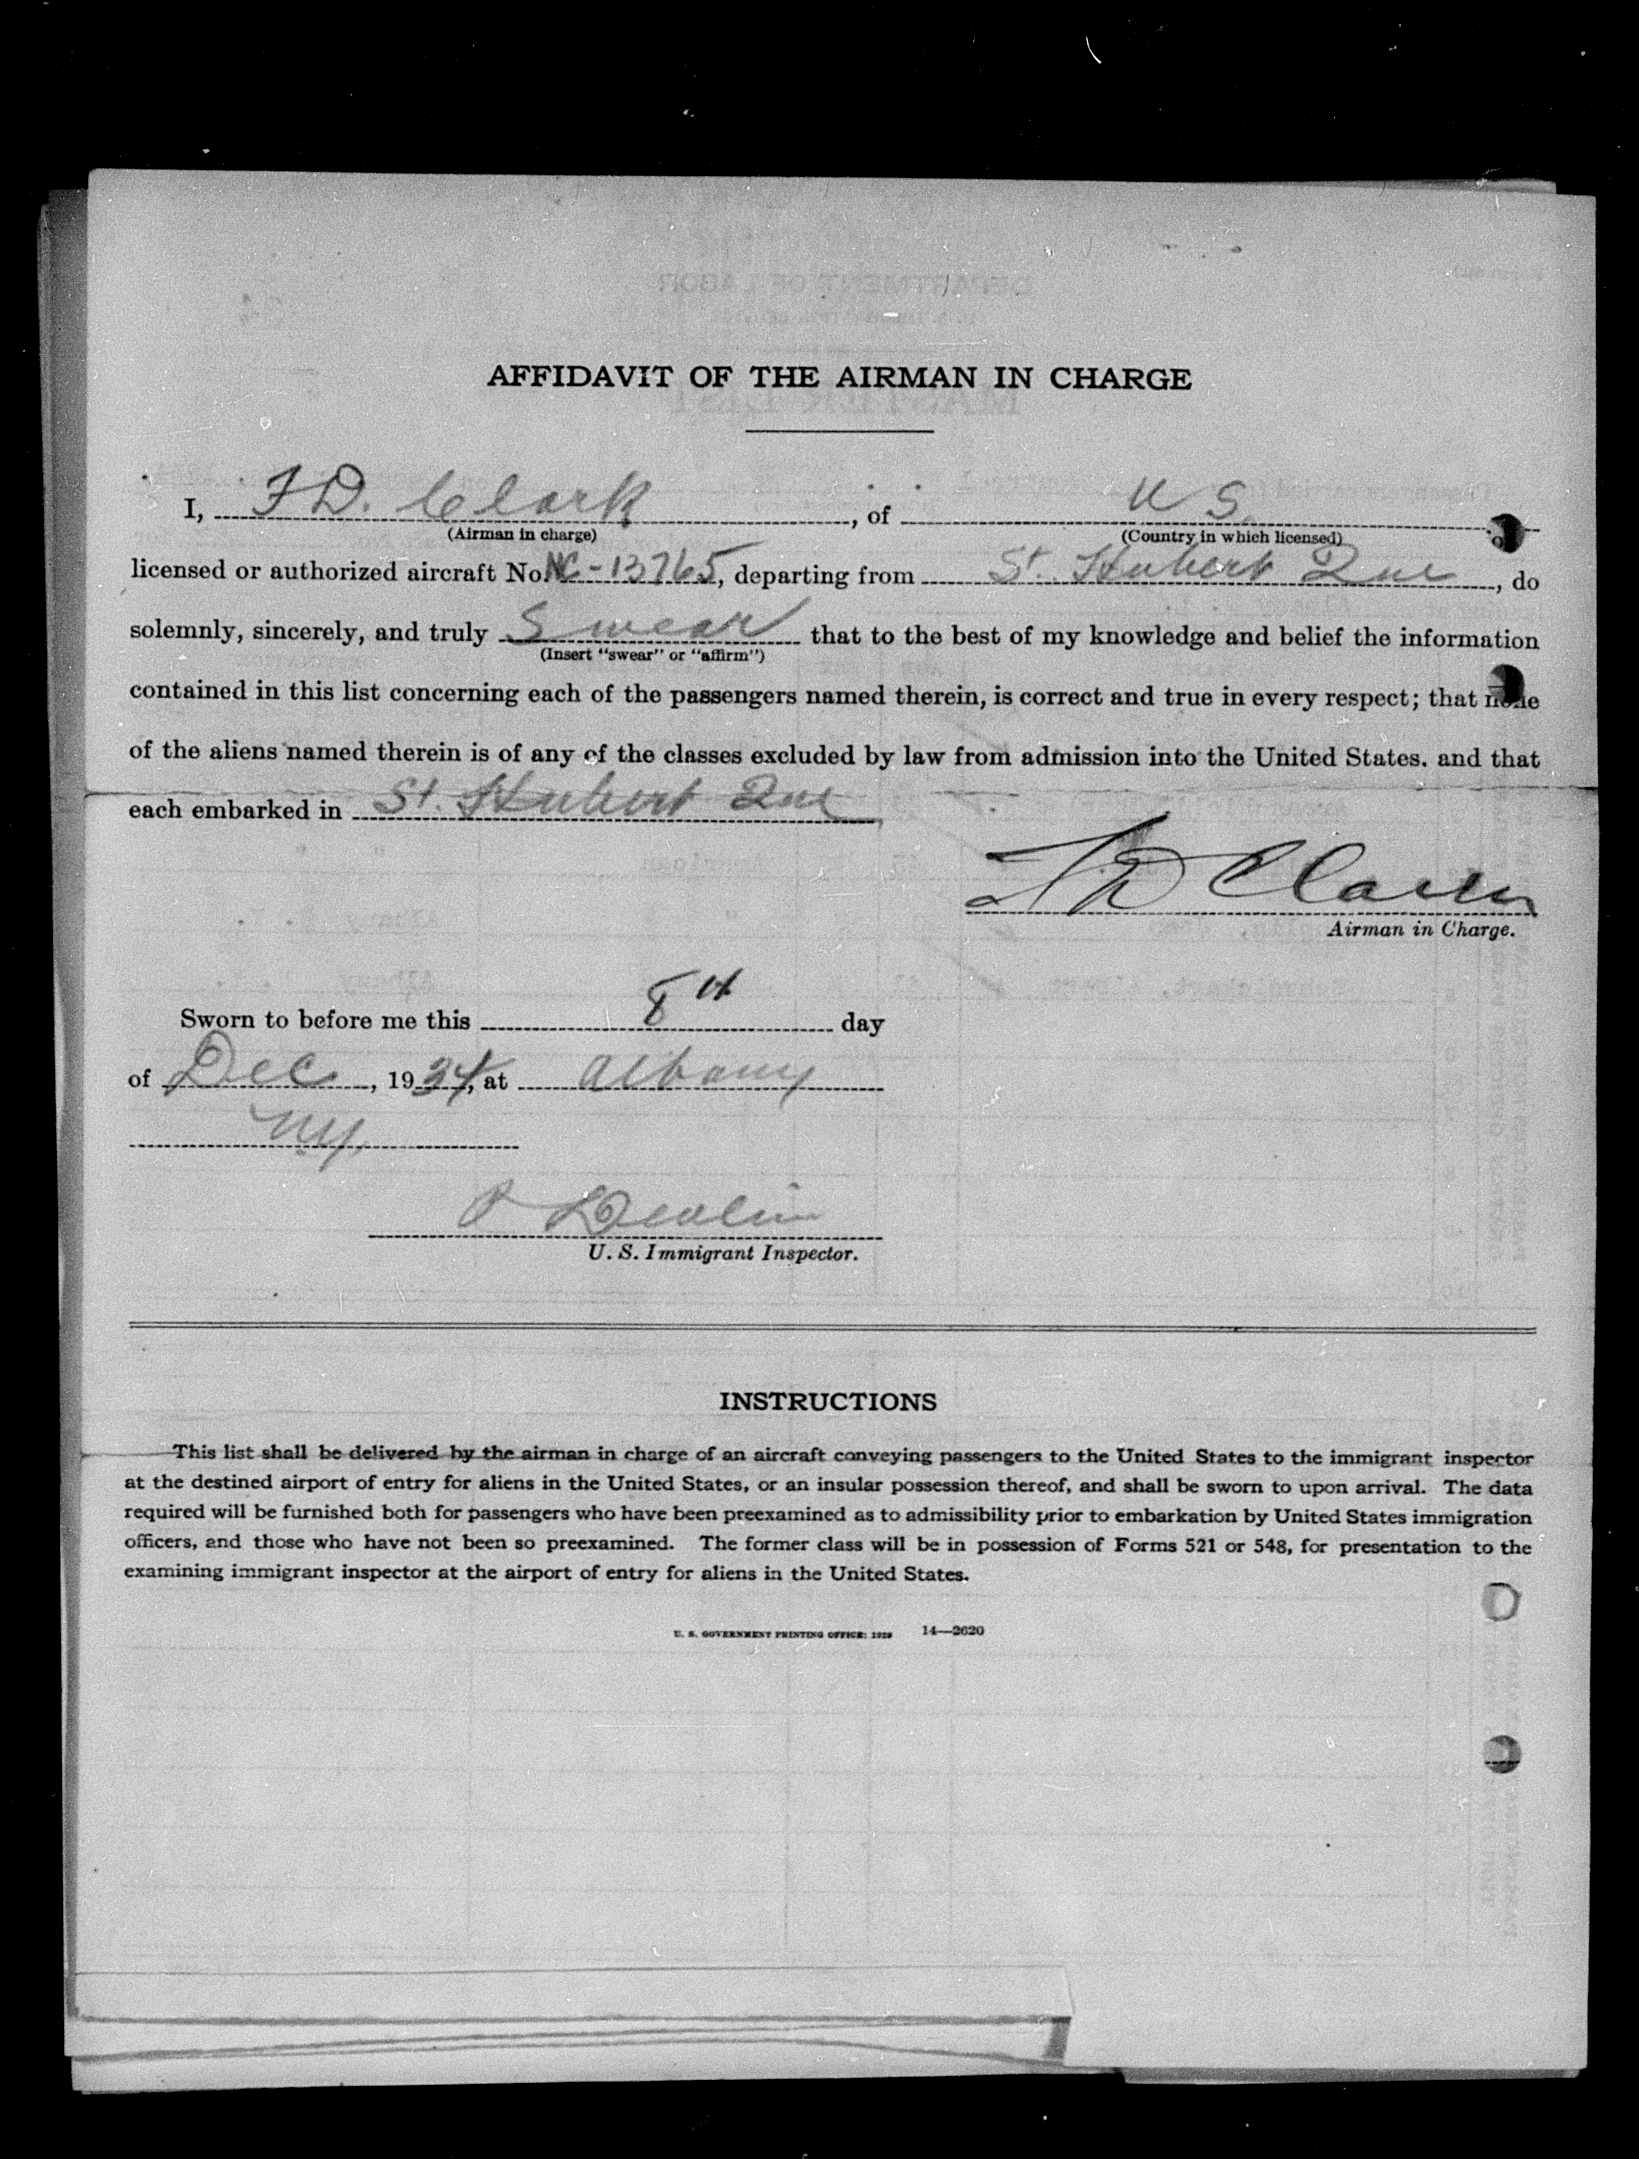 AFFIDAVIT OF THE AIRMAN IN CHARGE
I, F D. Clark, of U S.
(Airman in charge) (Country in which licensed)
licensed or authorized aircraft No. NC-13765, departing from St. Hubert Que, do
solemnly, sincerely, and truly Swear that to the best of my knowledge and belief the information
(Insert "swear" or "affirm")
contained in this list concerning each of the passengers named therein, is correct and true in every respect; that none
of the aliens named therein is of any of the classes excluded by law from admission into the United States. and that
each embarked in St. Hubert Que
F D Clark
Airman in Charge.
Sworn to before me this 8th day
of Dec, 1934, at Albany
NY.
Devlin
U. S. Immigrant Inspector.
INSTRUCTIONS
This list shall be delivered by the airman in charge of an aircraft conveying passengers to the United States to the immigrant inspector
at the destined airport of entry for aliens in the United States, or an insular possession thereof, and shall be sworn to upon arrival. The data
required will be furnished both for passengers who have been preexamined as to admissibility prior to embarkation by United States immigration
officers, and those who have not been so preexamined. The former class will be in possession of Forms 521 or 548, for presentation to the
examining immigrant inspector at the airport of entry for aliens in the United States.
U. S. GOVERNMENT PRINTING OFFICE: 1929 14—2620